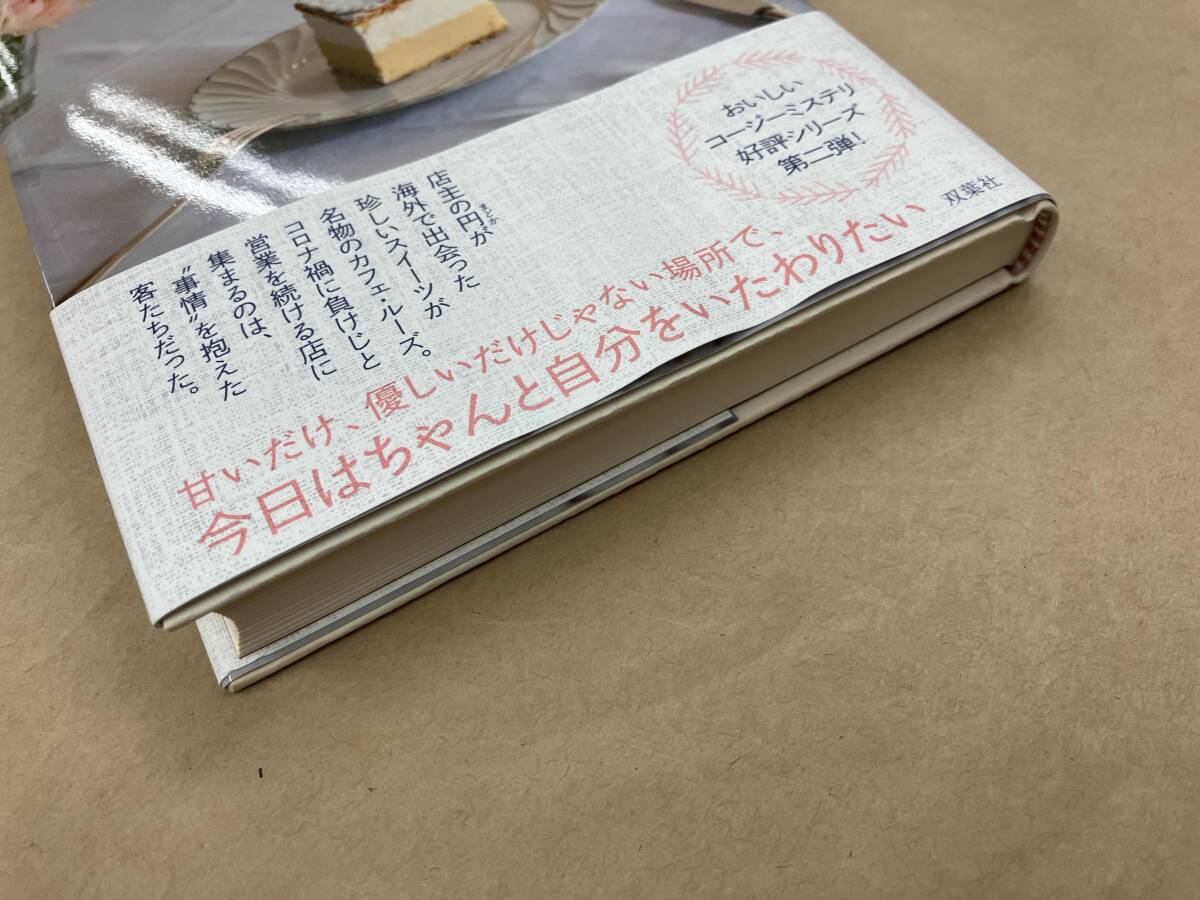 おいしい
コージーミステリ
好評シリーズ
第二弾！
双葉社
店主の円が
まどか
海外で出会った
珍しいスイーツが
名物のカフェ・ルーズ。
コロナ禍に負けじと
営業を続ける店に
集まるのは、
"事情"を抱えた
客たちだった。
甘いだけ、優しいだけじゃない場所で、
今日はちゃんと自分をいたわりたい